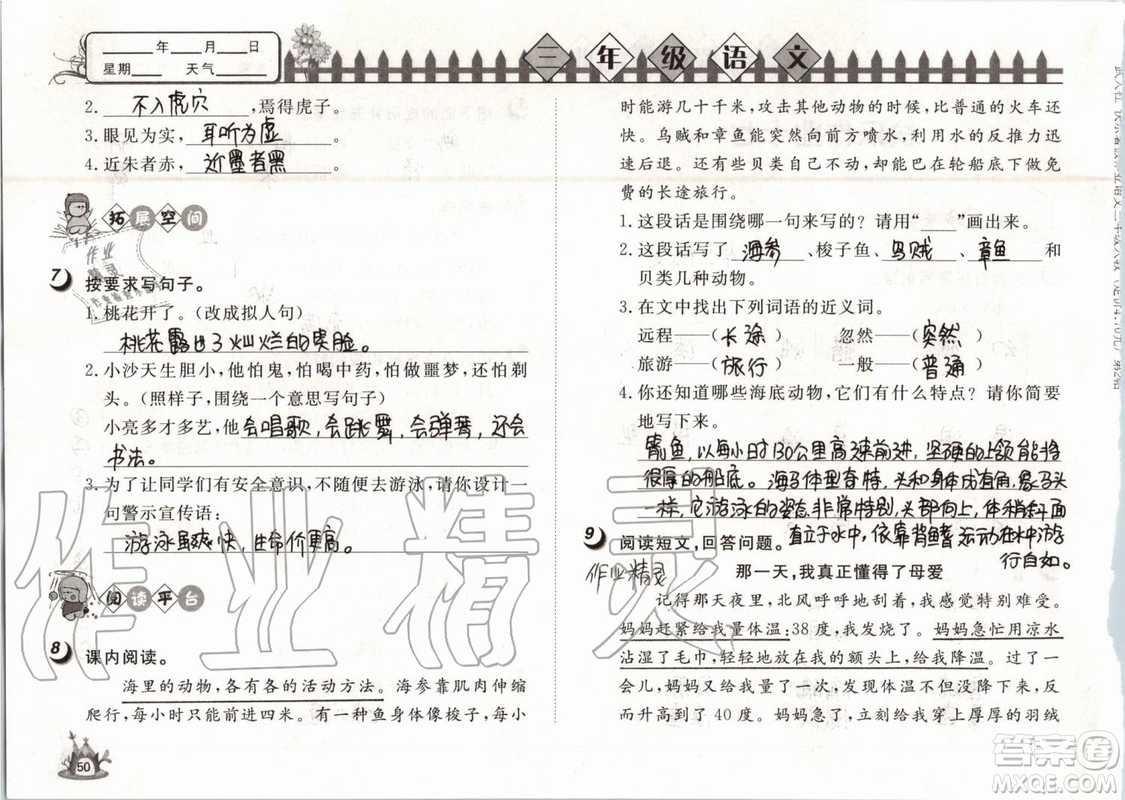 ____年____月____日
星期____ 天气____
三年级语文
2. 不入虎穴,焉得虎子。
3. 眼见为实, 耳听为虚。
4. 近朱者赤, 近墨者黑。
拓展空间
7 按要求写句子。
1. 桃花开了。(改成拟人句)
桃花露出了灿烂的笑脸。
2. 小沙天生胆小,他怕鬼,怕喝中药,怕做噩梦,还怕剃
头。(照样子,围绕一个意思写句子)
小亮多才多艺,他会唱歌,会跳舞,会弹琴,还会
书法。
3. 为了让同学们有安全意识,不随便去游泳,请你设计一
句警示宣传语:
游泳虽爽快,生命价更高。
阅读平台
8 课内阅读。
海里的动物,各有各的活动方法。海参靠肌肉伸缩
爬行,每小时只能前进四米。有一种鱼身体像梭子,每小
50
时能游几十千米,攻击其他动物的时候,比普通的火车还
快。乌贼和章鱼能突然向前方喷水,利用水的反推力迅
速后退。还有些贝类自己不动,能巴在轮船底下做免
费的长途旅行。
1. 这段话是围绕哪一句来写的?请用“____”画出来。
2. 这段话写了 海参 、梭子鱼、 乌贼 、 章鱼 和
贝类几种动物。
3. 在文中找出下列词语的近义词。
远程——(长途) 忽然——(突然)
旅游——(旅行) 一般——(普通)
4. 你还知道哪些海底动物,它们有什么特点?请你简要
地写下来。
箭鱼,以每小时130公里高速前进,坚强的上颌能将
很厚的船底。海马体型奇特,头和身体成有角,象马头
一样,游泳的姿态非常特别,头部向上,体稍斜
直立于水中,依靠背鳍运动在水中游
行自如。
9 阅读短文,回答问题。
作业精灵
那一天,我真正懂得了母爱
记得那天夜里,北风呼呼地刮着,我感觉特别难受。
妈妈赶紧给我量体温:38度,我发烧了。妈妈急忙用凉水
沾湿了毛巾,轻轻地放在我的额头上,给我降温。过了一
会儿,妈妈又给我量了一次,发现体温不但没有降下来,反
而升高到了40度。妈妈急了,立刻给我穿上厚厚的羽绒
作业精灵
答案圈
MXQE.COM